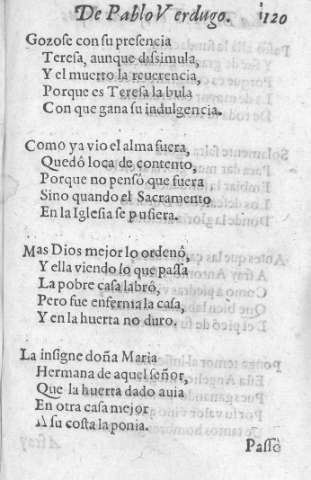 De Pablo Verdugo. 120
Gozose con su presencia
Teresa, aunque dissimula,
Y el muerto la reuerencia,
Porque es Teresa la bula
Con que gana su indulgencia.
Como ya vio el alma fuera,
Quedó loca de contento,
Porque no pensó que fuera
Sino quando el Sacramento
En la Iglesia se pusiera.
Mas Dios mejor lo ordenó,
Y ella viendo lo que passa
La pobre casa labró,
Pero fue enferma la casa,
Y en la huerta no duro.
La insigne doña Maria
Hermana de aquel señor,
Que la huerta dado auia
En otra casa mejor
A su costa la ponia.
Passò